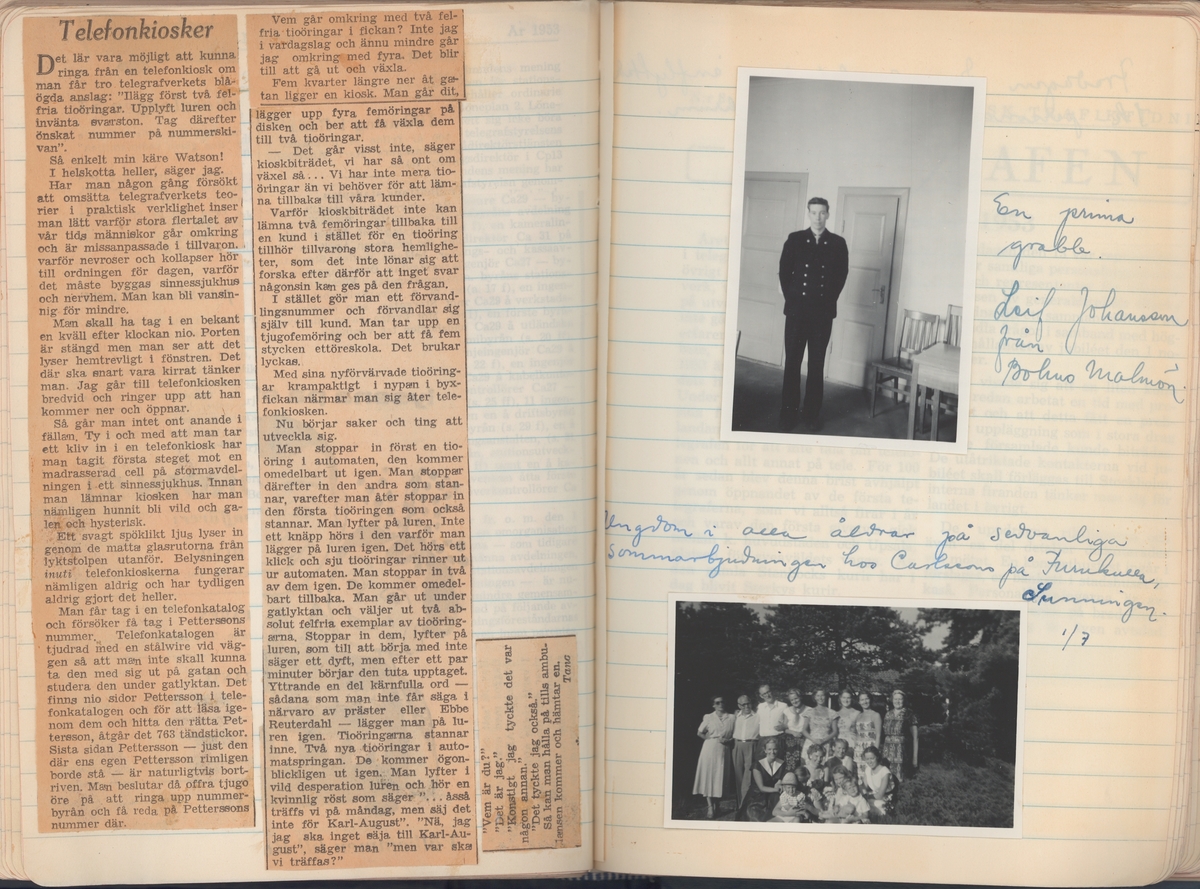 Telefonkiosker
Det lär vara möjligt att kunna
ringa från en telefonkiosk om
man får tro telegrafverkets blå-
ögda anslag: "Ilägg först två fel-
fria tioöringar. Upplyft luren och
invänta svarston. Tag därefter
önskat nummer på nummerski-
van".
Så enkelt min käre Watson!
I helskotta heller, säger jag.
Har man någon gång försökt
att omsätta telegrafverkets teo-
rier i praktisk verklighet inser
man lätt varför stora flertalet av
vår tids människor går omkring
och är missanpassade i tillvaron.
varför nevroser och kollapser hör
till ordningen för dagen, varför
det måste byggas sinnessjukhus
och nervhem. Man kan bli vansin-
nig för mindre.
Man skall ha tag i en bekant
en kväll efter klockan nio. Porten
är stängd men man ser att det
lyser hemtrevligt i fönstren. Det
där ska snart vara kirrat tänker
man. Jag går till telefonkiosken
bredvid och ringer upp att han
kommer ner och öppnar.
Så går man intet ont anande i
fällan. Ty i och med att man tar
ett kliv in i en telefonkiosk har
man tagit första steget mot en
madrasserad cell på stormavdel-
ningen i ett sinnessjukhus. Innan
man lämnar kiosken har man
nämligen hunnit bli vild och ga-
len och hysterisk.
Ett svagt spöklikt ljus lyser in
genom de matta glasrutorna från
lyktstolpen utanför. Belysningen
inuti telefonkioskerna fungerar
nämligen aldrig och har tydligen
aldrig gjort det heller.
Man får tag i en telefonkatalog
och försöker få tag i Petterssons
nummer. Telefonkatalogen är
tjudrad med en stålwire vid väg-
gen så att man inte skall kunna
ta den med sig ut på gatan och
studera den under gatlyktan. Det
finns nio sidor Pettersson i tele-
fonkatalogen och för att läsa ige-
nom dem och hitta den rätta Pet-
tersson, åtgår det 763 tändstickor.
Sista sidan Pettersson — just den
där ens egen Pettersson rimligen
borde stå — är naturligtvis bort-
riven. Man beslutar då offra tjugo
öre på att ringa upp nummer-
byrån och få reda på Petterssons
nummer där.
Vem går omkring med två fel-
fria tioöringar i fickan? Inte jag
i vardagslag och ännu mindre går
jag omkring med fyra. Det blir
till att gå ut och växla.
Fem kvarter längre ner åt ga-
tan ligger en kiosk. Man går dit,
lägger upp fyra femöringar på
disken och ber att få växla dem
till två tioöringar.
— Det går visst inte, säger
kioskbiträdet, vi har så ont om
växel så... Vi har inte mera tio-
öringar än vi behöver för att läm-
na tillbaka till våra kunder.
Varför kioskbiträdet inte kan
lämna två femöringar tillbaka till
en kund i stället för en tioöring
tillhör tillvarons stora hemlighe-
ter, som det inte lönar sig att
forska efter därför att inget svar
någonsin kan ges på den frågan.
I stället gör man ett förvand-
lingsnummer och förvandlar sig
själv till kund. Man tar upp en
tjugofemöring och ber att få fem
stycken ettöreskola. Det brukar
lyckas.
Med sina nyförvärvade tioöring-
ar krampaktigt i nypan i byx-
fickan närmar man sig åter tele-
fonkiosken.
Nu börjar saker och ting att
utveckla sig.
Man stoppar in först en tio-
öring i automaten, den kommer
omedelbart ut igen. Man stoppar
därefter in den andra som stan-
nar, varefter man åter stoppar in
den första tioöringen som också
stannar. Man lyfter på luren. Inte
ett knäpp hörs i den varför man
lägger på luren igen. Det hörs ett
klick och sju tioöringar rinner ut
ur automaten. Man stoppar in två
av dem igen. De kommer omedel-
bart tillbaka. Man går ut under
gatlyktan och väljer ut två ab-
solut felfria exemplar av tioöring-
arna. Stoppar in dem, lyfter på
luren, som till att börja med inte
säger ett dyft, men efter ett par
minuter börjar den tuta upptaget.
Yttrande en del kärnfulla ord —
sådana som man inte får säga i
närvaro av präster eller Ebbe
Reuterdahl — lägger man på lu-
ren igen. Tioöringarna stannar
inne. Två nya tioöringar i auto-
matspringan. De kommer ögon-
blickligen ut igen. Man lyfter i
vild desperation luren och hör en
kvinnlig röst som säger "... åsså
träffs vi på måndag, men säj det
inte för Karl-August". "Nä, jag
jag ska inget säja till Karl-Au-
gust", säger man "men var ska
vi träffas?"
"Vem är du?"
"Det är jag."
"Konstigt jag tyckte det var
någon annan."
"Det tyckte jag också."
Så kan man hålla på tills ambu-
lansen kommer och hämtar en.
Tana
En prima
grabb.
Leif Johansson
från
Bohus Malmön.
Ungdom i alla åldrar på sedvanliga
sommarbjudningen hos Carlssons på Furukulla,
Sunningen.
1/7